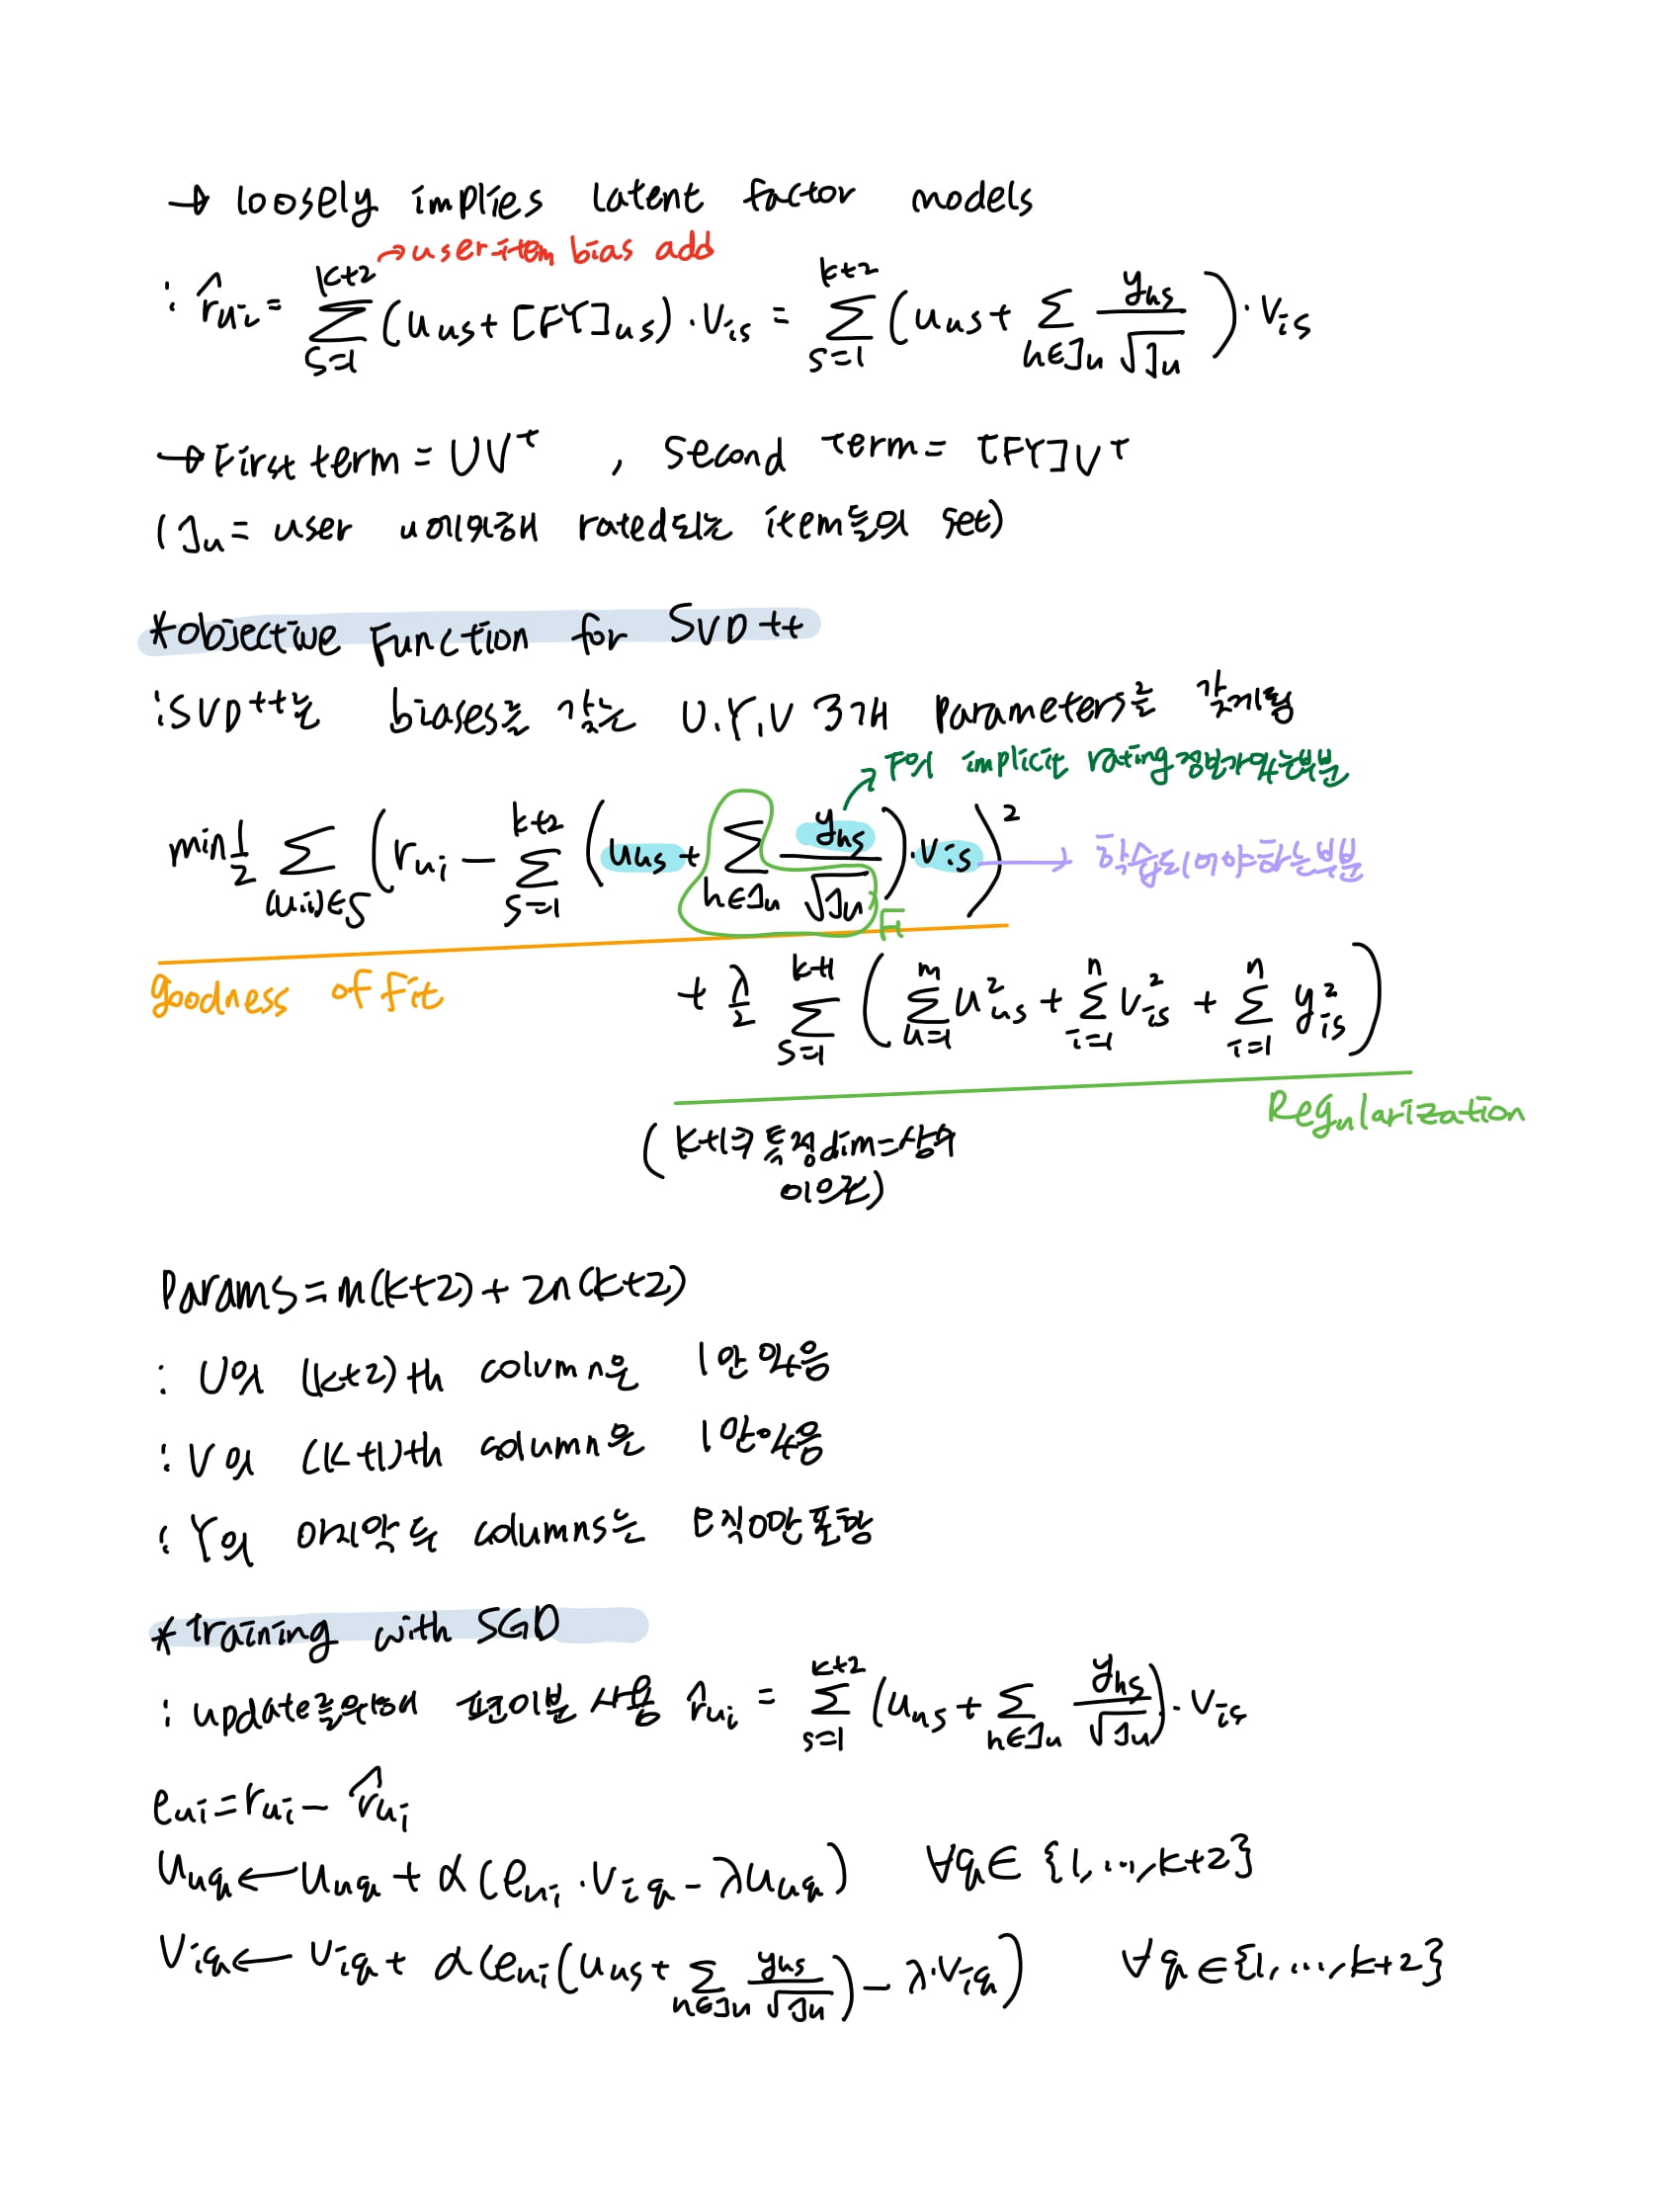 → loosely implies latent factor models
→ user item bias add
: r̂ui = Σ_{s=1}^{k+2} (uus + [FY]us) · vis = Σ_{s=1}^{k+2} (uus + Σ_{h∈Iu} yhs/√Iu) · vis
→ First term = UVᵀ , Second term = [FY]Vᵀ
(Iu = user u에의해 rated되는 item들의 set)
*objective Function for SVD++
: SVD++는 biases를 갖는 U.Y.V 3개 parameters를 갖게됨
→ F의 implicit rating 정보가 있는부분
min ½ Σ_{(u,i)∈S} (rui − Σ_{s=1}^{k+2} (uus + Σ_{h∈Iu} yhs/√Iu) · vis)² → 학습되어야하는부분
F
goodness of fit
+ λ/2 Σ_{s=1}^{k+1} (Σ_{u=1}^{m} u²us + Σ_{i=1}^{n} v²is + Σ_{i=1}^{n} y²is)
Regularization
(k+1의 특정dim=상수
이으로)
Params = m(k+2) + 2n(k+2)
: U의 (k+2)th column은 1만 있음
: V의 (k+1)th column은 1만있음
: Y의 마지막 두 columns는 오직0만 포함
*training with SGD
: update를위해 편미분 사용 r̂ui = Σ_{s=1}^{k+2} (uus + Σ_{h∈Iu} yhs/√Iu) · vis
eui = rui − r̂ui
uuq ← uuq + α(eui · viq − λuuq) ∀q ∈ {1, ..., k+2}
viq ← viq + α(eui(uus + Σ_{h∈Iu} yhs/√Iu) − λ·viq) ∀q ∈ {1, ..., k+2}